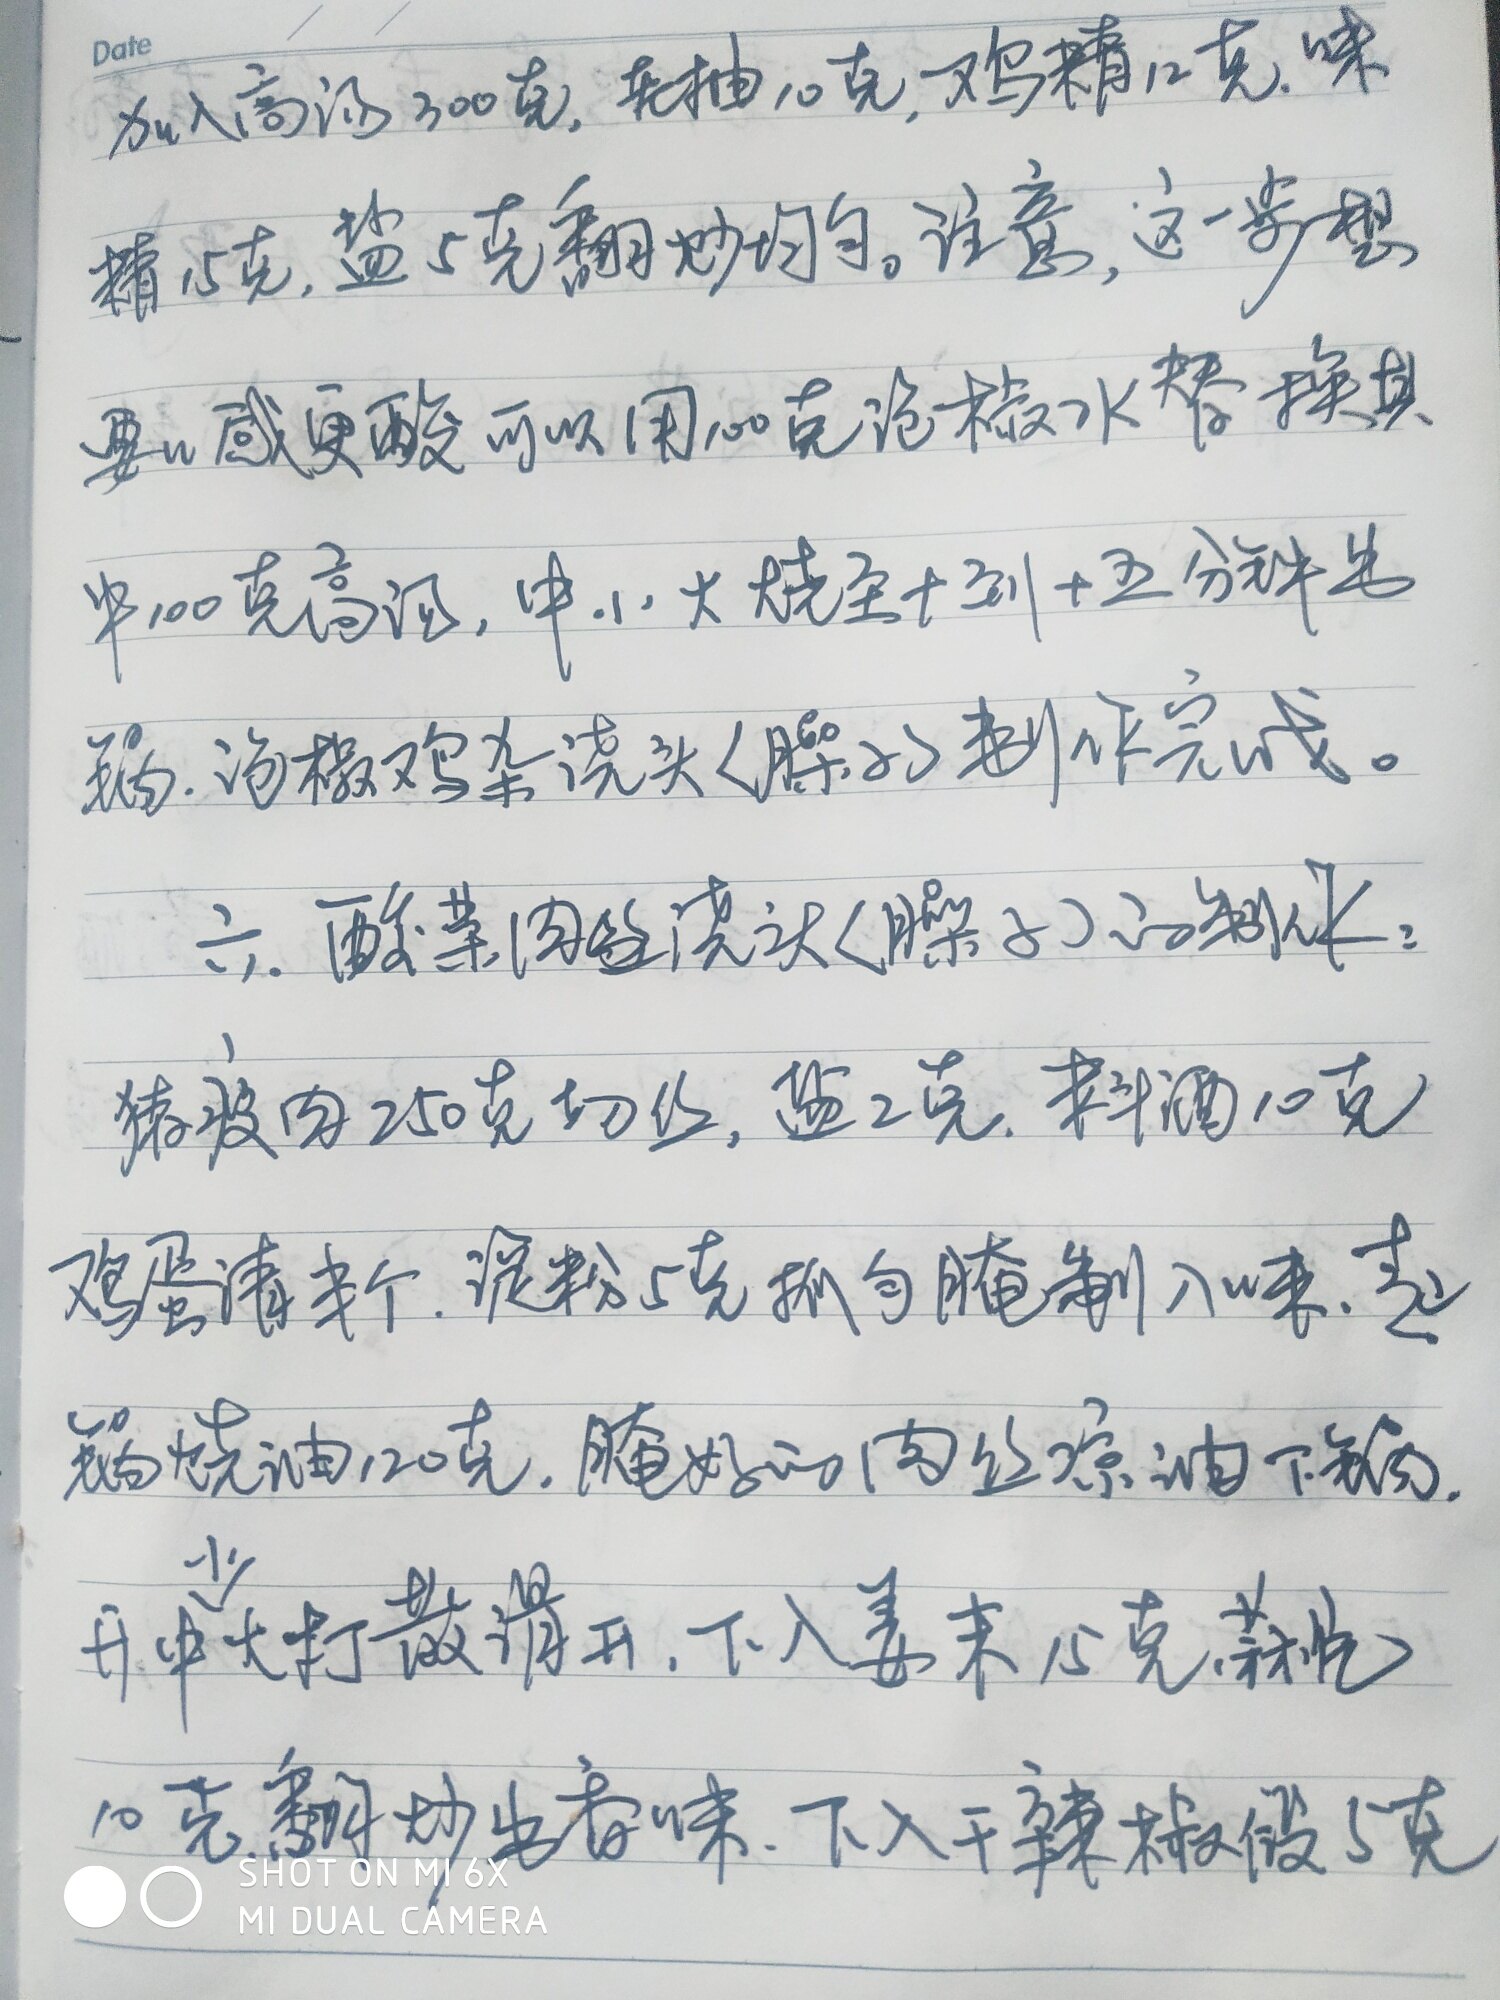 Date
加入高汤300克,老抽10克,鸡精12克.味
精15克,盐5克翻炒均匀。注意,这一步想
要口感更酸可以用100克泡椒水替换其
中100克高汤,中小火烧至十到十五分钟出
锅.泡椒鸡杂浇头(臊子)制作完成。
六.酸菜肉丝浇头(臊子)的制作:
猪瘦肉250克切丝,盐2克.料酒10克
鸡蛋清半个.淀粉5克抓匀腌制入味.起
锅烧油120克.腌好的肉丝凉油下锅.
开中小火打散滑开.下入姜末15克,蒜
10克.翻炒出香味.下入干辣椒段5克
SHOT ON MI 6X
MI DUAL CAMERA